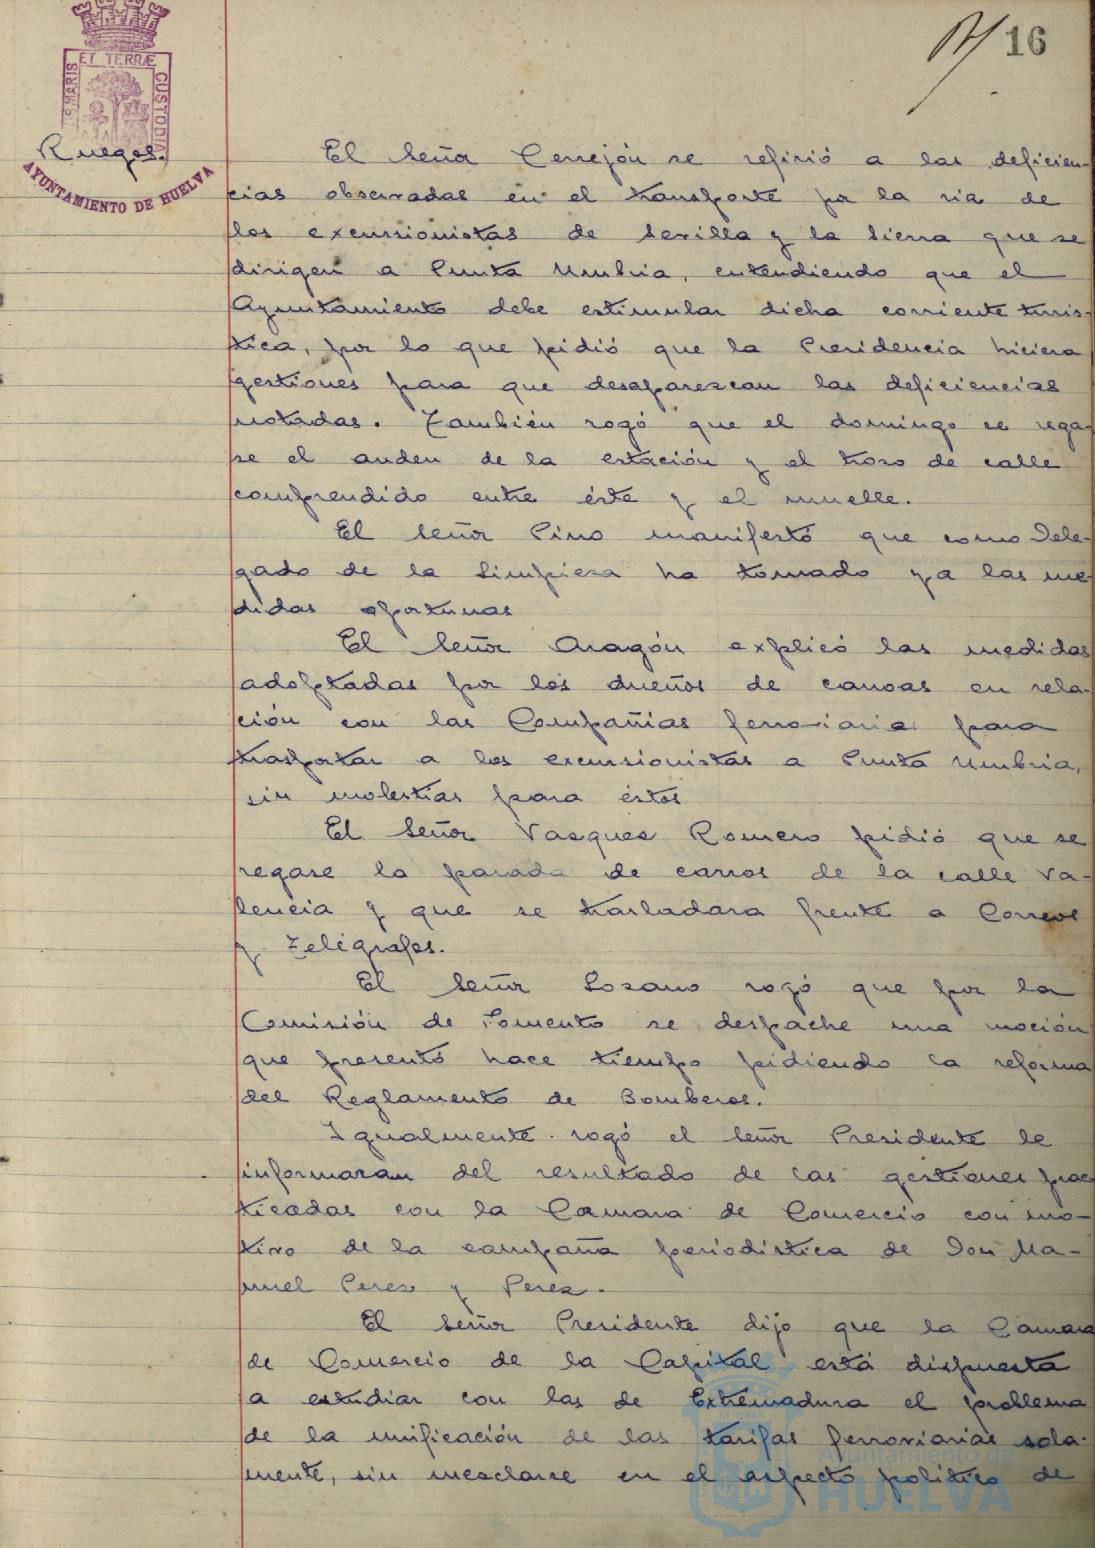 16
ET TERRÆ
MARIS
CUSTODIA
Ruegos.
AYUNTAMIENTO DE HUELVA
El Señor Cerrejón se refirió a las deficien-
cias observadas en el transporte por la ria de
los excursionistas de Sevilla y la Sierra que se
dirigen a Punta Umbria, entendiendo que el
Ayuntamiento debe estimular dicha corriente turis-
tica, por lo que pidió que la Presidencia hiciera
gestiones para que desaparezcan las deficiencias
notadas. También rogó que el domingo se rega-
se el anden de la estación y el trozo de calle
comprendido entre éste y el muelle.
El Señor Pino manifestó que como Dele-
gado de la Limpieza ha tomado ya las me-
didas oportunas
El Señor Aragón explicó las medidas
adoptadas por los dueños de canoas en rela-
ción con las Compañias ferroviarias para
trasportar a los excursionistas a Punta Umbria,
sin molestias para éstos
El Señor Vasques Romero pidió que se
regase la parada de carros de la calle Va-
lencia y que se trasladara frente a Correos
y Telégrafos.
El Señor Lozano rogó que por la
Comisión de Fomento se despache una moción
que presentó hace tiempo pidiendo la reforma
del Reglamento de Bomberos.
Igualmente rogó el Señor Presidente le
informaran del resultado de las gestiones prac
ticadas con la Camara de Comercio con mo-
tivo de la campaña periodistica de Don Ma-
nuel Perez y Perez.
El Señor Presidente dijo que la Camara
de Comercio de la Capital está dispuesta
a estudiar con las de Extremadura el problema
de la unificación de las tarifas ferroviarias sola-
mente, sin mezclarse en el aspecto politico de
Ayuntamiento de
HUELVA